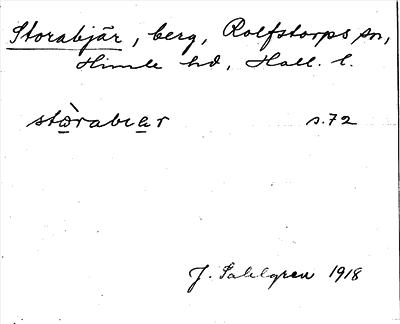 Storabjär, berg, Rolfstorps sn,
Himle hd, Hall. l.
stòrabιar s.72
J. Sahlgren 1918